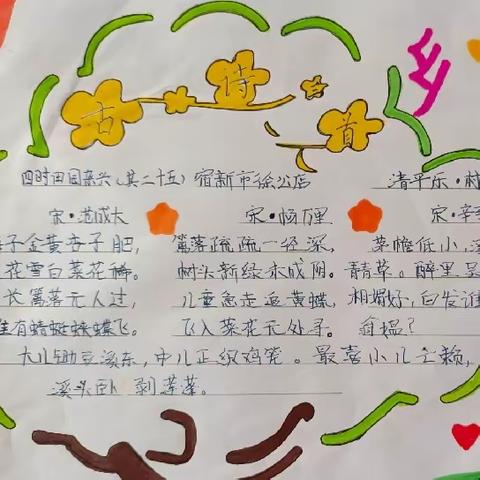 古诗三首
乡
四时田园杂兴(其二十五) 宿新市徐公店 清平乐·村
宋·范成大 宋·杨万里 宋·辛
子金黄杏子肥, 篱落疏疏一径深, 茅檐低小,溪
花雪白菜花稀。 树头新绿未成阴。 青草。醉里吴
长篱落无人过, 儿童急走追黄蝶, 相媚好,白发谁
唯有蜻蜓蛱蝶飞。 飞入菜花无处寻。 翁媪?
大儿锄豆溪东,中儿正织鸡笼。最喜小儿亡赖,
溪头卧剥莲蓬。